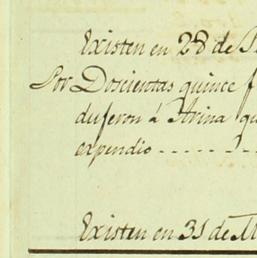 Existen en 28 de
Por Doscientas quince
dujeron á Arina
expendio - - - - - -
Existen en 31 de M